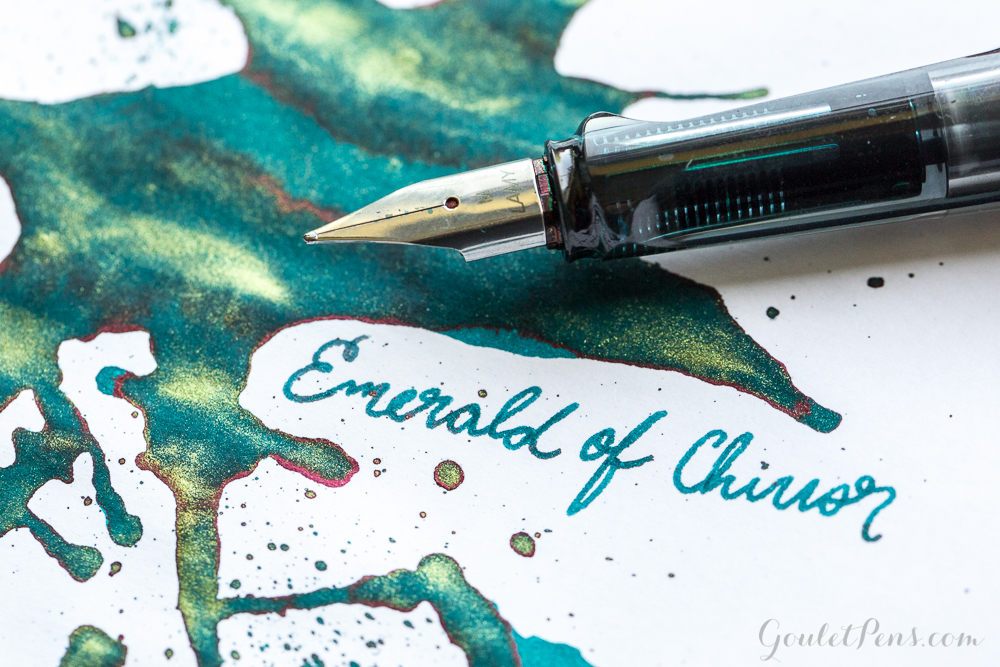 LAMY
Emerald of Chivor
GouletPens.com